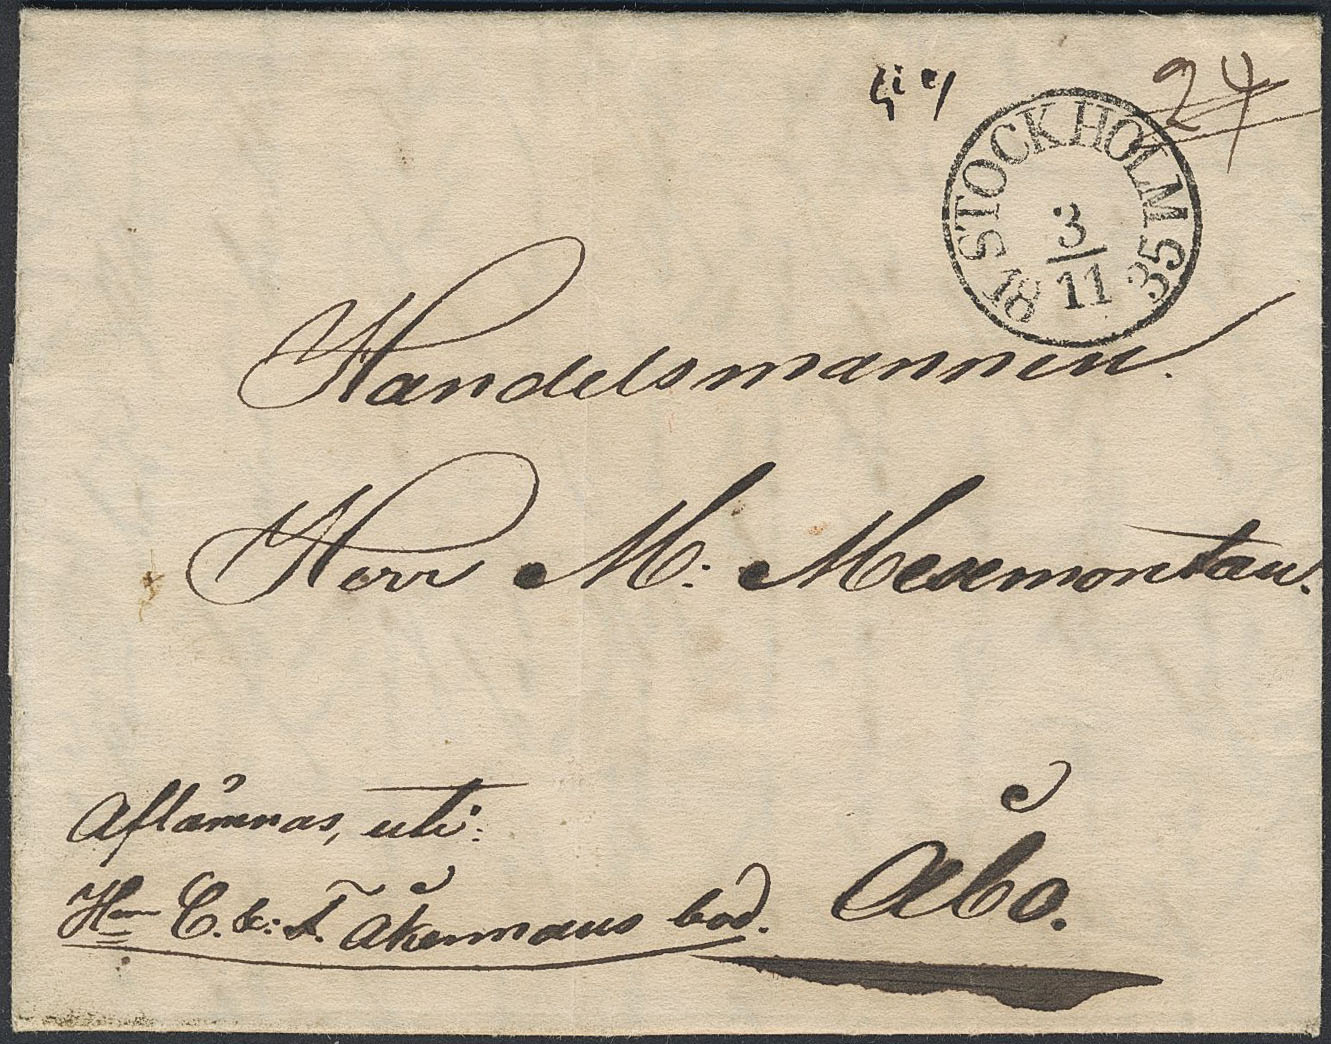 24
STOCKHOLM
3
11
1835
Handelsmannen.
Herr M: Mexmontan.
Aflämnas, uti:
Hrr C. & F. Åkermans bod.
Åbo.